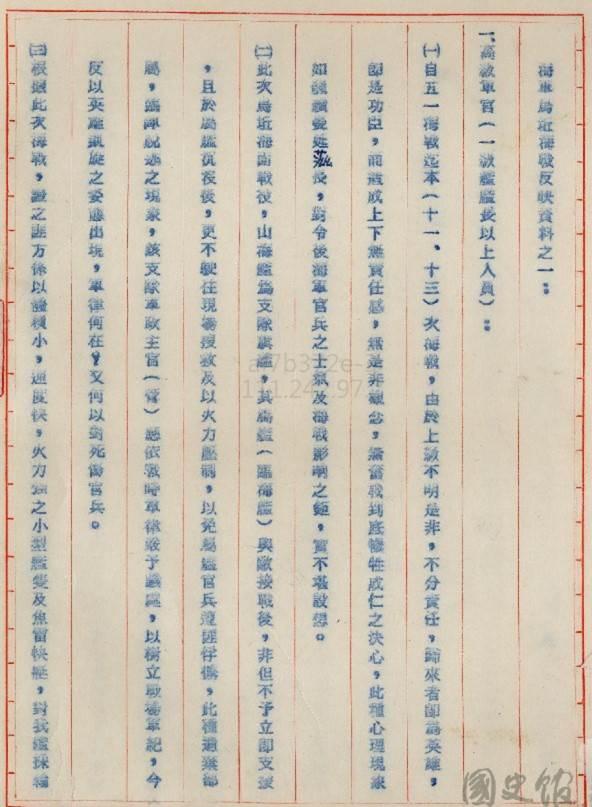 海軍烏坵海戰反映資料之一：
一、高級軍官（一級艦艦長以上人員）：
㈠自五一海戰迄本（十一、十三）次海戰，由於上級不明是非，不分責任，歸來者即為英雄，
即是功臣，而造成上下無責任感，無是非觀念，無奮戰到底犧牲成仁之決心，此種心理現象
如繼續蔓延滋長，對今後海軍官兵之士氣及海戰影響之鉅，實不堪設想。
㈡此次烏坵海面戰役，山海艦為支隊旗艦，其屬艦（臨海艦）與敵接戰後，非但不予立即支援
，且於屬艦沉沒後，更不駛往現場援救及以火力壓制，以免屬艦官兵遭匪俘擄，此種遺棄部
屬，臨陣脫逃之現象，該支隊軍政主官（管）應依戰時軍律嚴予議處，以樹立戰場軍紀，今
反以英雄凱旋之姿態出現，軍律何在？又何以對死傷官兵。
㈢根據此次海戰，證之匪方係以體積小，速度快，火力強之小型艦隻及魚雷快艇，對我艦採
國史館